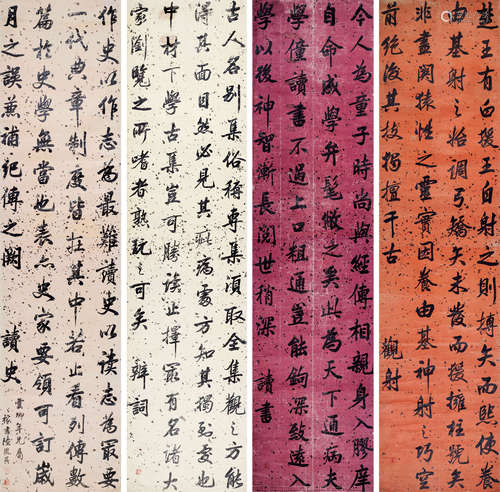 楚王有白猿王自射之則搏矢而熙使養
由基射之始調弓矯矢未發而猨擁柱號矣
非盡關猿性之靈實因養由基神射之巧空
前絕後其技獨擅千古　觀射
今人為童子時尚與經傳相親身入膠庠
自命咸學弁髦棄之矣此為天下通病夫
學僮讀書不過上口粗通豈能鉤深致遠入
學以後神智漸長閱世稍深　讀書
古人名別集俗稱專集須取全集觀之方能
得其面目然必見其癥病處方知其獨到處也
中材下學古集豈可勝讀止擇最有名諸大
家瀏覽之所嗜者熟玩之可矣　辭詞
作史以作志為最難讀史以讀志為最要
一代典章制度皆在其中若止看列傳數
篇於史學無當也表亦史家要領可訂歲
月之誤兼補紀傳之闕　讀史
雲卿年兄屬